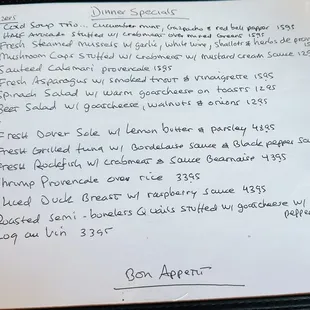 Dinner Specials
Cold Soup Trio... Cucumber mint, Gazpacho & red bell pepper 1595
Half Avocado Stuffed w/ Crabmeat over mixed Greens 1595
Fresh Steamed Mussels w/ garlic, white wine, Shallots & herbs de pro
Mushroom Caps Stuffed w/ Crabmeat w/ mustard cream Sauce 129
Sauteed Calamari provencale 1595
Fresh Asparagus w/ smoked trout & vinaigrette 1595
Spinach Salad w/ warm goatcheese on toasts 1295
Beet Salad w/ goatcheese, walnuts & onions 1295
Fresh Dover Sole w/ Lemon butter & parsley 4395
Fresh Grilled tuna w/ Bordelaise sauce & Black pepper
Fresh Rockfish w/ crabmeat & Sauce Bearnaise 4395
Shrimp Provencale over rice 3395
Sliced Duck Breast w/ raspberry sauce 4395
Roasted semi-boneless Quails stuffed w/ goatcheese w/
pepper
Coq au Vin 3395
Bon Appetit